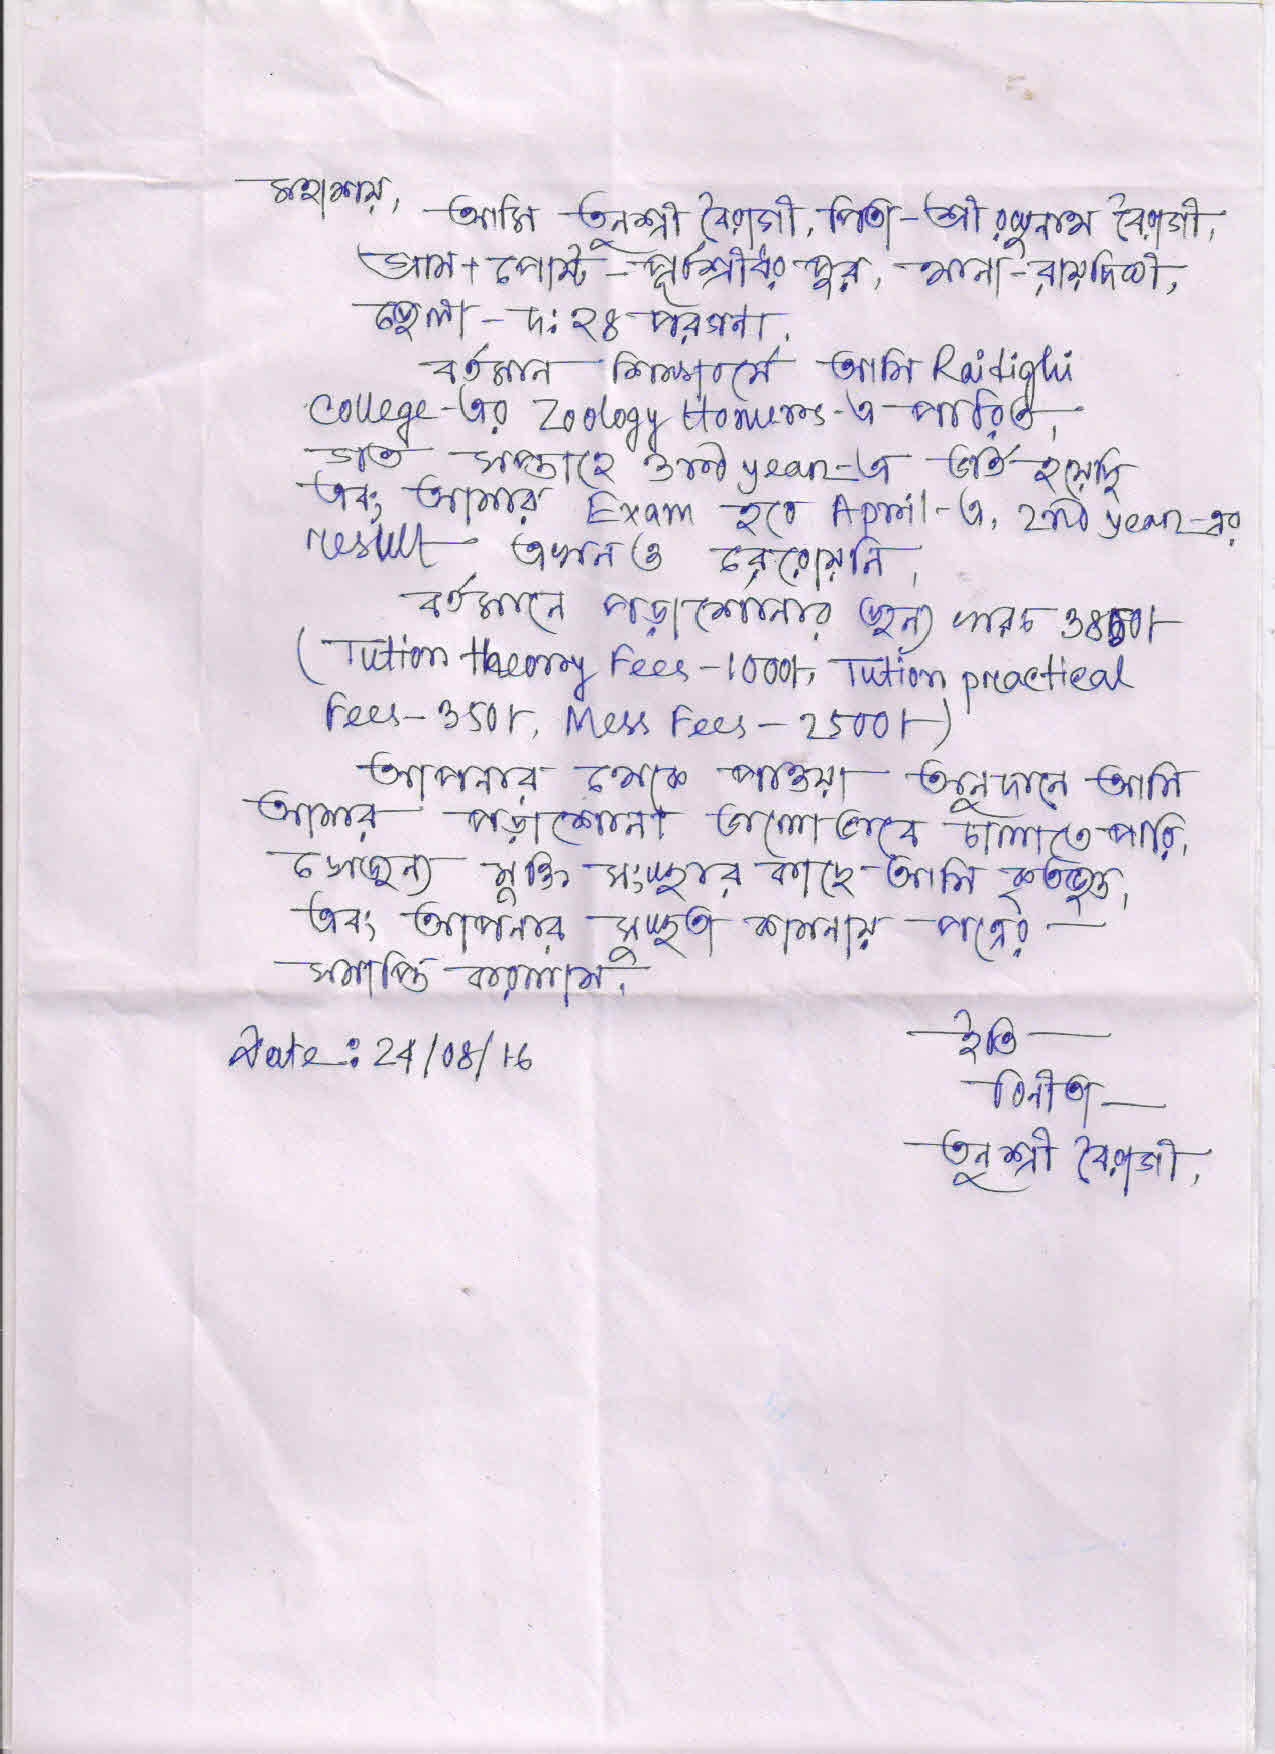 মহাশয়,
আমি তনুশ্রী বৈরাগী, পিতা-শ্রী রঘুনাথ বৈরাগী,
গ্রাম + পোস্ট - পূর্বশ্রীধরপুর, থানা-রায়দিঘী,
জেলা - দঃ ২৪ পরগনা।
বর্তমান শিক্ষাবর্ষে আমি Raidighi
College-এর Zoology Honours-এ পাঠরত,
গত সপ্তাহে 3rd year-এ ভর্তি হয়েছি
এবং আমার Exam হবে April-এ, 2nd year-এর
result এখনও বেরোয়নি,
বর্তমানে পড়াশোনার জন্য খরচ 3850/-
(Tution theory Fees - 1000/-, Tution practical
Fees - 350/-, Mess Fees - 2500/-)
আপনার থেকে পাওয়া অনুদানে আমি
আমার পড়াশোনা ভালোভাবে চালাতে পারি,
সেজন্য মুক্তি সংস্থার কাছে আমি কৃতজ্ঞ,
এবং আপনার সুস্থতা কামনায় পত্রের
সমাপ্তি করলাম।
ইতি
Date: 24/08/16
বিনীতা
তনুশ্রী বৈরাগী,